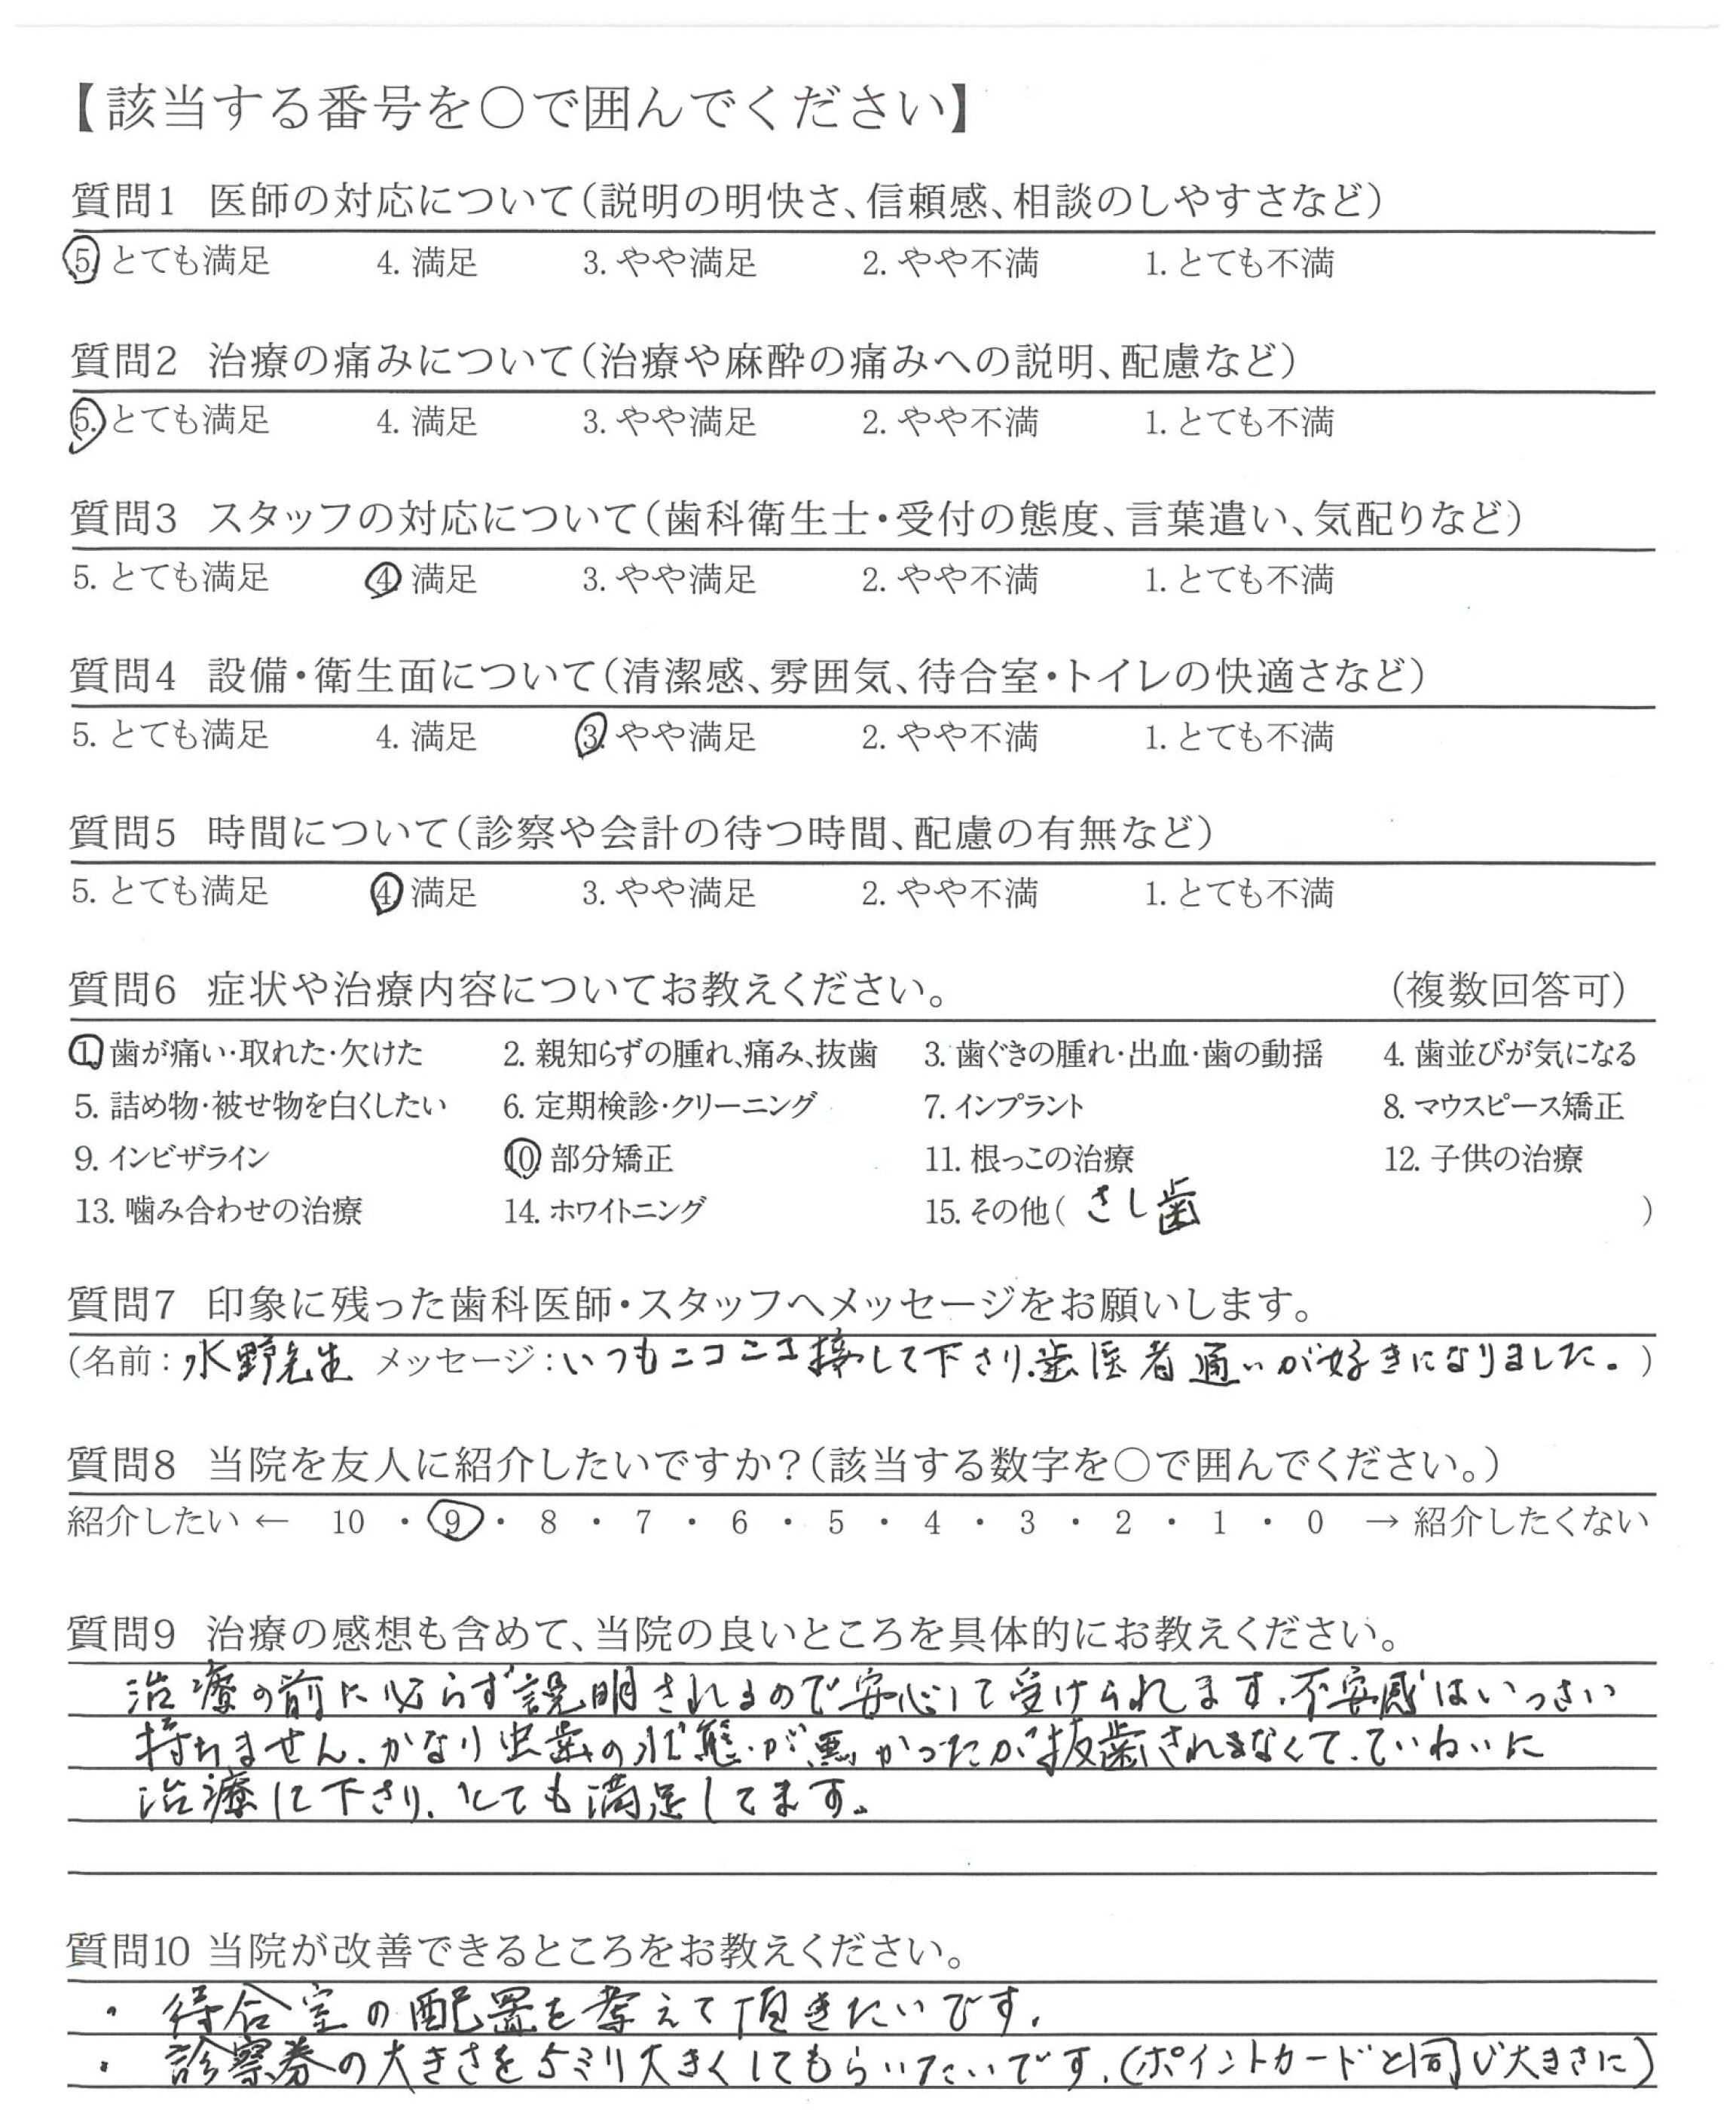 【該当する番号を〇で囲んでください】
質問1 医師の対応について(説明の明快さ、信頼感、相談のしやすさなど)
5. とても満足 4. 満足 3. やや満足 2. やや不満 1. とても不満
質問2 治療の痛みについて(治療や麻酔の痛みへの説明、配慮など)
5. とても満足 4. 満足 3. やや満足 2. やや不満 1. とても不満
質問3 スタッフの対応について(歯科衛生士・受付の態度、言葉遣い、気配りなど)
5. とても満足 4. 満足 3. やや満足 2. やや不満 1. とても不満
質問4 設備・衛生面について(清潔感、雰囲気、待合室・トイレの快適さなど)
5. とても満足 4. 満足 3. やや満足 2. やや不満 1. とても不満
質問5 時間について(診察や会計の待つ時間、配慮の有無など)
5. とても満足 4. 満足 3. やや満足 2. やや不満 1. とても不満
質問6 症状や治療内容についてお教えください。 (複数回答可)
1. 歯が痛い・取れた・欠けた 2. 親知らずの腫れ、痛み、抜歯 3. 歯ぐきの腫れ・出血・歯の動揺 4. 歯並びが気になる
5. 詰め物・被せ物を白くしたい 6. 定期検診・クリーニング 7. インプラント 8. マウスピース矯正
9. インビザライン 10. 部分矯正 11. 根っこの治療 12. 子供の治療
13. 噛み合わせの治療 14. ホワイトニング 15. その他( さし歯 )
質問7 印象に残った歯科医師・スタッフへメッセージをお願いします。
(名前：水野先生 メッセージ：いつもニコニコ接して下さり、歯医者通いが好きになりました。)
質問8 当院を友人に紹介したいですか?(該当する数字を〇で囲んでください。)
紹介したい ← 10 ・ 9 ・ 8 ・ 7 ・ 6 ・ 5 ・ 4 ・ 3 ・ 2 ・ 1 ・ 0 → 紹介したくない
質問9 治療の感想も含めて、当院の良いところを具体的にお教えください。
治療の前に必らず説明されるので安心して受けられます。不安感はいっさい
持ちません。かなり虫歯の状態が悪かったが抜歯されまなくて、ていねいに
治療して下さり、とても満足してます。
質問10 当院が改善できるところをお教えください。
・ 待合室の配置を考えて頂きたいです。
・ 診察券の大きさを5ミリ大きくしてもらいたいです。(ポイントカードと同じ大きさに)